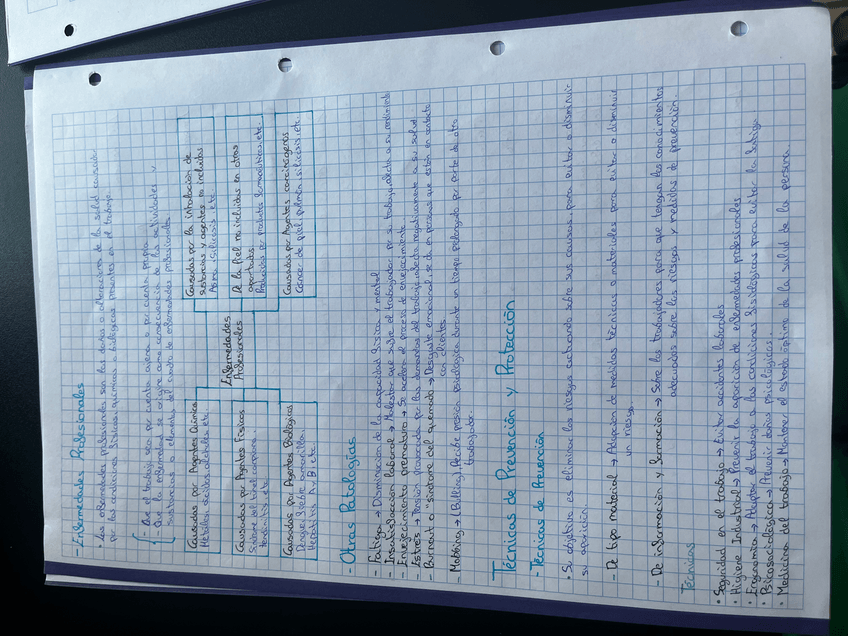 - Enfermedades Profesionales
• Las enfermedades profesionales son los daños o alteraciones de la salud causada
por las condiciones físicas, químicas o biológicas presentes en el trabajo.
- Que el trabajo sea por cuenta ajena o por cuenta propia
- Que la enfermedad se origine como consecuencia de las actividades y
sustancias o elementos del cuadro de enfermedades profesionales
Causadas por Agentes Químicos
Metales, ácidos, alcoholes etc.
Causadas por Agentes Físicos
Síndrome del túnel carpiano.
tendinitis etc.
Causadas por Agentes Biológicos
Dengue, fiebre amarilla.
Hepatitis A y B etc.
Enfermedades
Profesionales
Causadas por la inhalación de
sustancias y agentes no incluidos
Asma, silicosis etc.
De la Piel no incluidas en otros
apartados
Producidas por productos farmacéuticos, etc.
Causadas por Agentes carcinógenos
Cáncer de piel, pulmón, silicosis, etc.
- Otras Patologías
- Fatiga → Disminución de la capacidad física y mental
- Insatisfacción laboral → Malestar que sufre el trabajador por su trabajo, afecta a su rendimiento
- Envejecimiento prematuro → Se acelera el proceso de envejecimiento
- Estrés → Tensión provocada por las demandas del trabajo, afecta negativamente a su salud
- Burnout o "síndrome del quemado" → Desgaste emocional, se da en personas que están en contacto
con clientes
- Mobbing → (Bulling) Recibe presión psicológica durante un tiempo prolongado por parte de otro
trabajador.
Técnicas de Prevención y Protección
- Técnicas de Prevención
• Su objetivo es eliminar los riesgos actuando sobre sus causas, para evitar o disminuir
su aparición.
- De tipo material → Adopción de medidas técnicas o materiales para evitar o disminuir
un riesgo.
- De información y formación → Sobre los trabajadores para que tengan los conocimientos
adecuados sobre los riesgos y medidas de prevención.
Técnicas
• Seguridad en el trabajo → Evitar accidentes laborales
• Higiene Industrial → Prevenir la aparición de enfermedades profesionales
• Ergonomía → Adaptar el trabajo a las condiciones fisiológicas para evitar la fatiga
• Psicosociológica → Prevenir daños psicológicos
• Medicina del trabajo → Mantener el estado óptimo de la salud de la persona.